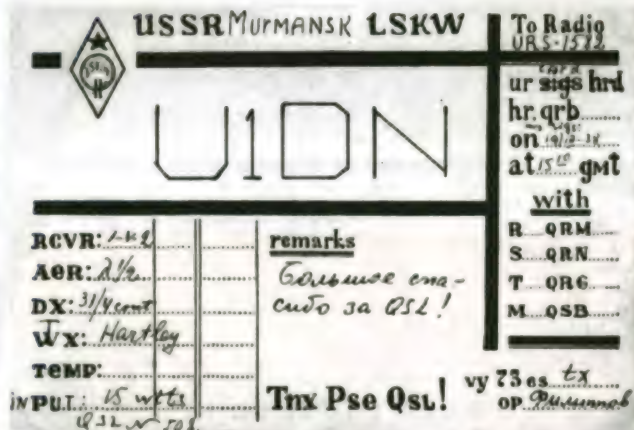 USSR MURMANSK LSKW
U1DN
To Radio
URS-1582
ur sigs hrd
hr. qrb
on
at 15 10 gmt
with
R QRM
S QRN
T QRG
M QSB
RCVR: 1-V-2
Aer: λ 1/2
DX: 31/4 cont
WX: Hartley
Temp:
INPUT: 15 wtts
QSL N
remarks
Большое спа-
сибо за QSL!
Tnx Pse QSL!
vy 73 es tx
op Филиппов